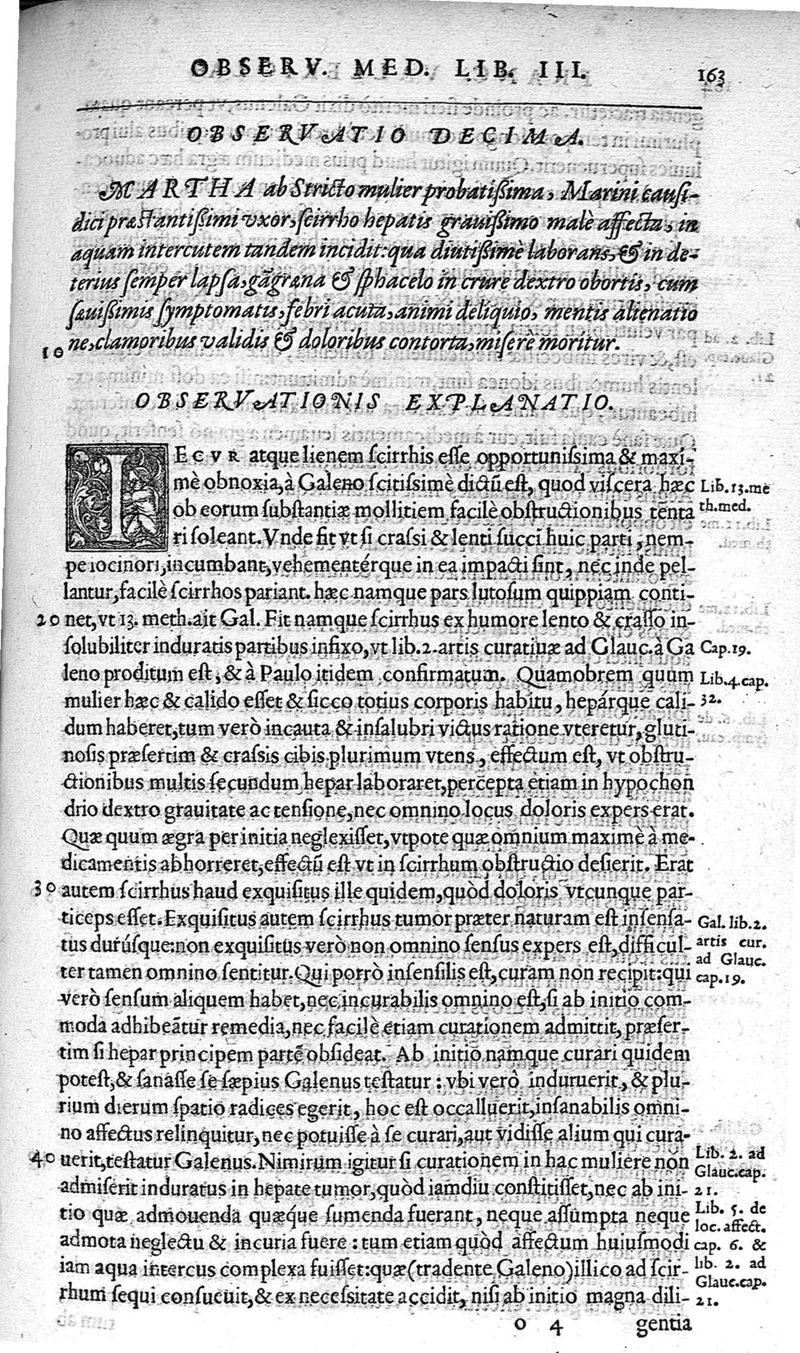 OBSERV. MED. LIB. III. 163
OBSERVATIO DECIMA.
MARTHA ab Stricto mulier probatißima, Marini causi-
dici præstantißimi vxor, scirrho hepatis grauißimo malè affecta, in
aquam intercutem tandem incidit: qua diutißimè laborans, & in de-
terius semper lapsa, gãgræna & sphacelo in crure dextro obortis, cum
sæuißimis symptomatis, febri acuta, animi deliquio, mentis alienatio
10 ne, clamoribus validis & doloribus contorta, miserè moritur.
OBSERVATIONIS EXPLANATIO.
IECVR atque lienem scirrhis esse opportunissima & maxi-
mè obnoxia, à Galeno scitissimè dictũ est, quod viscera hæc
Lib. 13. me
th. med.
ob eorum substantiæ mollitiem facilè obstructionibus tenta
ri soleant. Vnde fit vt si crassi & lenti succi huic parti, nem-
pe iocinori, incumbant, vehementérque in ea impacti sint, nec inde pel-
lantur, facilè scirrhos pariant. hæc namque pars lutosum quippiam conti-
20 net, vt 13. meth. ait Gal. Fit namque scirrhus ex humore lento & crasso in-
solubiliter induratis partibus infixo, vt lib. 2. artis curatiuæ ad Glauc. à Ga
Cap. 19.
leno proditum est, & à Paulo itidem confirmatum. Quamobrem quum
Lib. 4. cap.
32.
mulier hæc & calido esset & sicco totius corporis habitu, hepárque cali-
dum haberet, tum verò incauta & insalubri victus ratione vteretur, gluti-
nosis præsertim & crassis cibis plurimum vtens, effectum est, vt obstru-
ctionibus multis secundum hepar laboraret, percepta etiam in hypochon
drio dextro grauitate ac tensione, nec omnino locus doloris expers erat.
Quæ quum ægra per initia neglexisset, vtpote quæ omnium maximè à me-
dicamentis abhorreret, effectũ est vt in scirrhum obstructio desierit. Erat
30 autem scirrhus haud exquisitus ille quidem, quòd doloris vtcunque par-
ticeps esset. Exquisitus autem scirrhus tumor præter naturam est insensa-
Gal. lib. 2.
artis cur.
ad Glauc.
cap. 19.
tus durúsque: non exquisitus verò non omnino sensus expers est, difficul-
ter tamen omnino sentitur. Qui porrò insensilis est, curam non recipit: qui
verò sensum aliquem habet, nec incurabilis omnino est, si ab initio com-
moda adhibeãtur remedia, nec facilè etiam curationem admittit, præser-
tim si hepar principem partẽ obsideat. Ab initio namque curari quidem
potest, & sanasse se sæpius Galenus testatur: vbi verò induruerit, & plu-
rium dierum spatio radices egerit, hoc est occalluerit, insanabilis omni-
no affectus relinquitur, nec potuisse à se curari, aut vidisse alium qui cura-
40 uerit, testatur Galenus. Nimirum igitur si curationem in hac muliere non
Lib. 2. ad
Glauc. cap.
21.
admiserit induratus in hepate tumor, quòd iamdiu constitisset, nec ab ini-
tio quæ admouenda quæque sumenda fuerant, neque assumpta neque
Lib. 5. de
loc. affect.
cap. 6. &
lib. 2. ad
Glauc. cap.
21.
admota neglectu & incuria fuere: tum etiam quòd affectum huiusmodi
iam aqua intercus complexa fuisset: quæ (tradente Galeno) illico ad scir-
rhum sequi consueuit, & ex necessitate accidit, nisi ab initio magna dili-
o 4 gentia